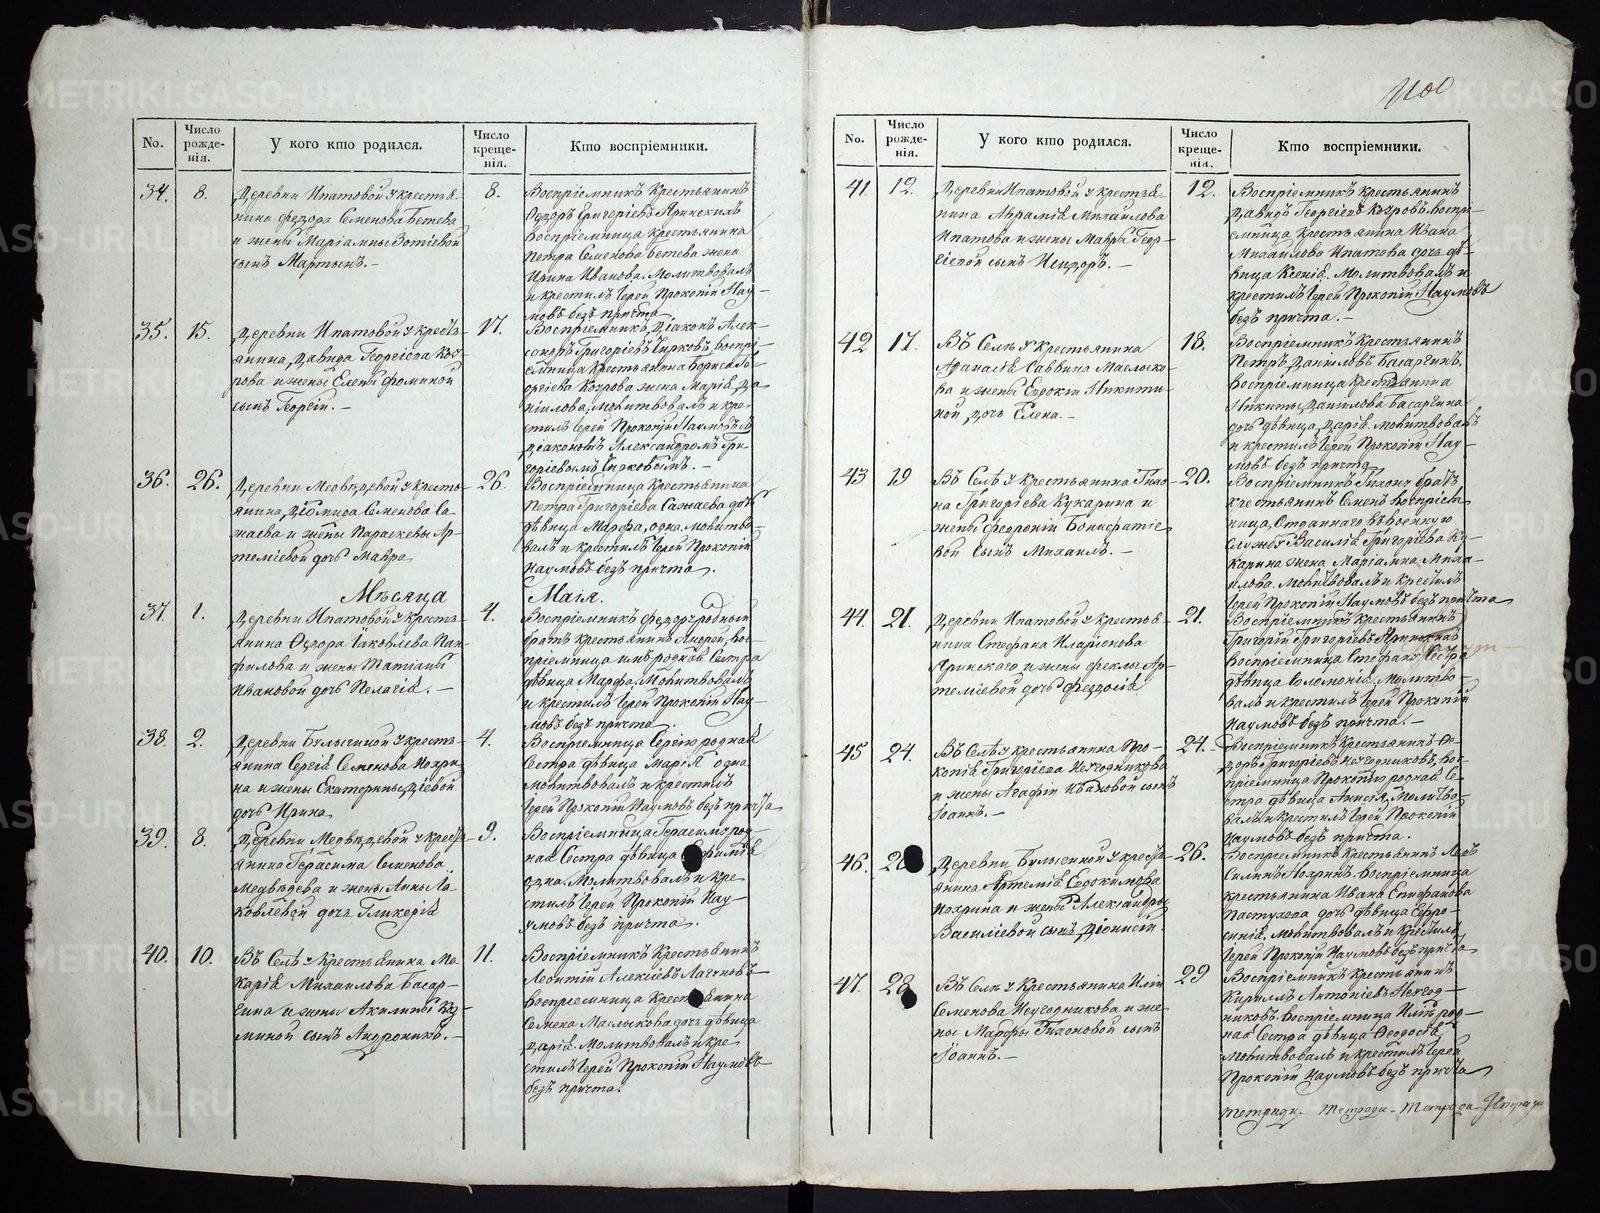 No.
Число рожде-нія.
У кого кто родился.
Число креще-нія.
Кто воспріемники.
34. 8. Деревни Ипатовой у крестья-
нина Федора Семенова Бетева
и жены Маріамны Зотіевой
сынъ Мартынъ.–
8. Воспріемникъ крестьянинъ
Федоръ Григоріевъ Яринскихъ
воспріемница крестьянина
Петра Семенова Бетева жена
Ирина Иванова. Молитвовалъ
и крестилъ Іерей Прокопій Нау-
мовъ безъ причта
35. 15. Деревни Ипатовой у кресть-
янина Давида Георгіева Коч-
рова и жены Елены Фоминой
сынъ Георгій.–
17. Воспріемникъ, Діаконъ Алек-
сандръ Григоріевъ Чирковъ, воспрі-
емница крестьянина Бориса Ге-
оргіева Кочрова жена Марія Да-
ніилова, молитвовалъ и кре-
стилъ Іерей Прокопій Наумовъ съ
Діакономъ Александромъ Гри-
горіевымъ Чирковымъ.–
36. 26. Деревни Медвѣдевой у кресть-
янина, Діомида Семенова Са-
жаева и жены Параскевы Ар-
теміевой дочь Мавра
26. Воспріемница крестьянина
Петра Григоріева Сажаева дочь
дѣвица Марфа, одна. молитво-
валъ и крестилъ Іерей Прокопій
Наумовъ безъ причта.
Мѣсяца Маія.
37. 1. Деревни Ипатовой у кресть-
янина Федора Іаковлева Пан-
филова и жены Татіаны
Ивановой дочь Пелагія.–
4. Воспріемникъ Федору родный
братъ крестьянинъ Андрей, вос-
пріемница имъ родная сестра
дѣвица Марфа. Молитвовалъ
и крестилъ Іерей Прокопій Нау-
мовъ безъ причта.
38. 2. Деревни Булычиной у кресть-
янина Сергія Семенова Нохри-
на и жены Екатерины
дочь Ирина
4. Воспріемница Сергію родная
сестра дѣвица Марія одна
молитвовалъ и крестилъ
Іерей Прокопій Наумовъ безъ причта
39. 8. Деревни Медвѣдевой у кресть-
янина Герасима Семенова
Медвѣдева и жены Анны Іа-
ковлевой дочь Гликерія
9. Воспріемница Герасиму род-
ная сестра дѣвица
одна. Молитвовалъ и кре-
стилъ Іерей Прокопій Нау-
умовъ безъ причта.
40. 10. Въ Селѣ у крестьянина Ма-
карія Михаилова Басар-
гина и жены Акилины Коз-
миной сынъ Андроникъ.–
11. Воспріемникъ крестьянинъ
Леонтій Алексіевъ
воспріемница крестьянина
Семена Маслыкова дочь дѣвица
Дарія. Молитвовалъ и кре-
стилъ Іерей Прокопій Наумовъ
безъ причта.
No.
Число рожде-нія.
У кого кто родился.
Число креще-нія.
Кто воспріемники.
41 12. Деревни Ипатовой у крестья-
нина Авраамія Михаилова
Ипатова и жены Мавры Геор-
гіевой сынъ Исидоръ.–
12. Воспріемникъ крестьянинъ
Давидъ Георгіевъ Кочровъ, воспрі-
емница крестьянина Ивана
Михаилова Ипатова дочь дѣ-
вица Ксенія. Молитвовалъ и
крестилъ Іерей Прокопій Наумовъ
безъ причта.–
42 17. Въ Селѣ у крестьянина
Афанасія Саввина Маслыко-
ва и жены Евдокіи Никити-
ной, дочь Елена.–
18. Воспріемникъ крестьянинъ
Петръ Даниловъ Басаргинъ,
воспріемница крестьянина
Никиты Данилова Басаргина
дочь дѣвица Дарія. молитвовалъ
и крестилъ Іерей Прокопій Нау-
мовъ безъ причта
43 19 Въ Селѣ у крестьянина Тихо-
на Григоріева Кукарина и
жены Февроніи Бонифатіе-
вой сынъ Михаилъ.–
20. Воспріемникъ Тихону братъ
крестьянинъ Семенъ воспріем-
ница, Отданнаго въ военную
службу Василія Григоріева Ку-
карина жена Маріамна Миха-
илова. молитвовалъ и крестилъ
Іерей Прокопій Наумовъ безъ причта
44. 21. Деревни Ипатовой у крестья-
нина Стефана Иларіонова
Яринскаго и жены Феклы Ар-
теміевой дочь Феодосія
21. Воспріемникъ крестьянинъ
Григорій Григоріевъ Яринскихъ
воспріемница Стефану сестра
дѣвица Соломонія. Молитво-
валъ и крестилъ Іерей Прокопій
Наумовъ безъ причта.–
45 24. Въ Селѣ у крестьянина Про-
копія Григоріева Неугодникова
и жены Агафіи Ивановой сынъ
Іоаннъ.–
24. Воспріемникъ крестьянинъ Фе-
доръ Григоріевъ Неугодниковъ, вос-
пріемница Прокопію родная се-
стра дѣвица Анисія. Молитво-
валъ и крестилъ Іерей Прокопій
Наумовъ безъ причта.
46. Деревни Булычиной у кресть-
янина Артемія Евдокимова
Нохрина и жены Александры
Василіевой сынъ Діонисій
26. Воспріемникъ крестьянинъ
Силинъ Нохринъ. Воспріемница
крестьянина Ивана Епифанова
Пастухова дочь дѣвица Ефро-
синія. молитвовалъ и крестилъ
Іерей Прокопій Наумовъ безъ причта
47. 28 Въ Селѣ у крестьянина Иліи
Семенова Неугодникова и же-
ны Марфы Тихоновой сынъ
Іоаннъ.–
29 Воспріемникъ крестьянинъ
Кириллъ Антоніевъ Неугод-
никовъ. Воспріемница Иліи род-
ная сестра дѣвица Феодосія
молитвовалъ и крестилъ Іерей
Прокопій Наумовъ безъ причта
тетради– тетради– тетради–
METRIKI.GASO-URAL.RU